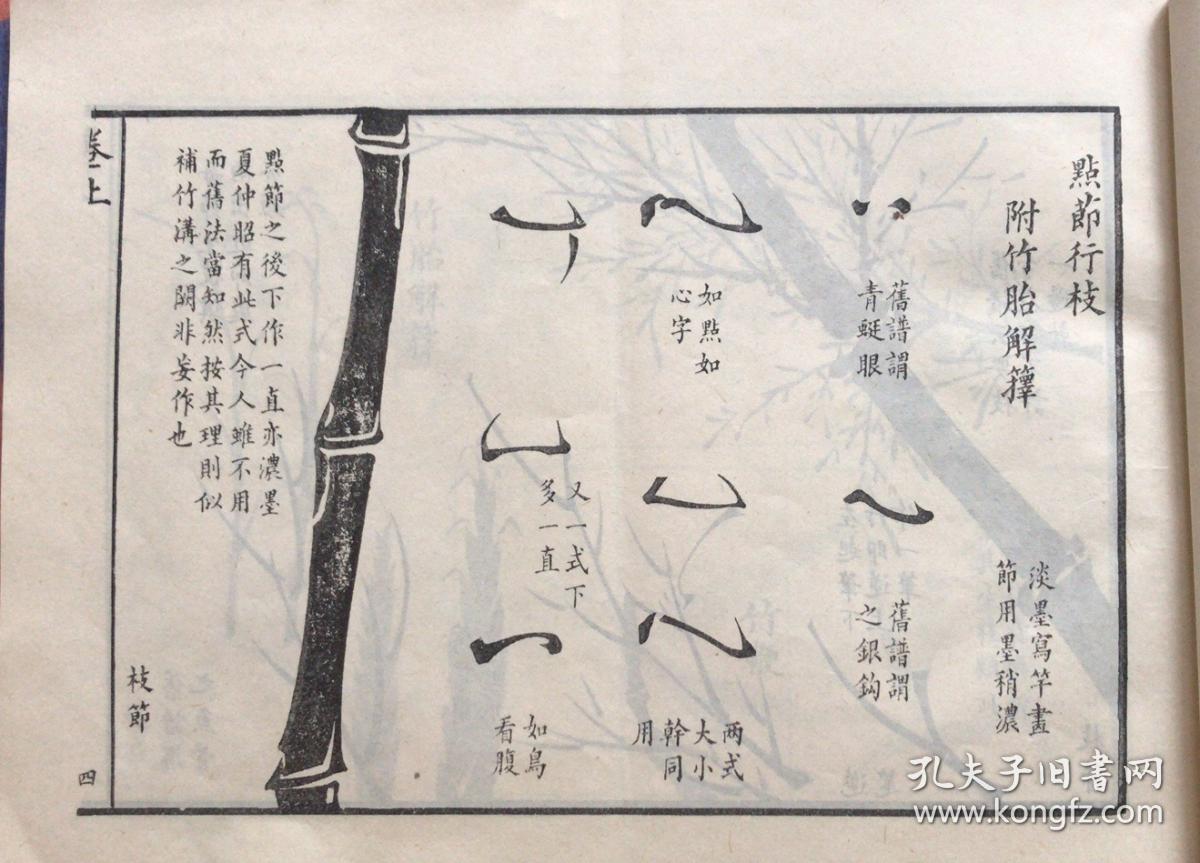 點節行枝
附竹胎解籜
淡墨寫竿畫
節用墨稍濃
舊譜謂
青蜓眼
舊譜謂
之銀鈎
如點如
心字
两式
大小
幹同
用
又一式下
多一直
如鳥
看腹
點節之後下作一直亦濃墨
夏仲昭有此式今人雖不用
而舊法當知然按其理則似
補竹溝之闕非妄作也
卷上
枝節
四
孔夫子旧書网
www.kongfz.com